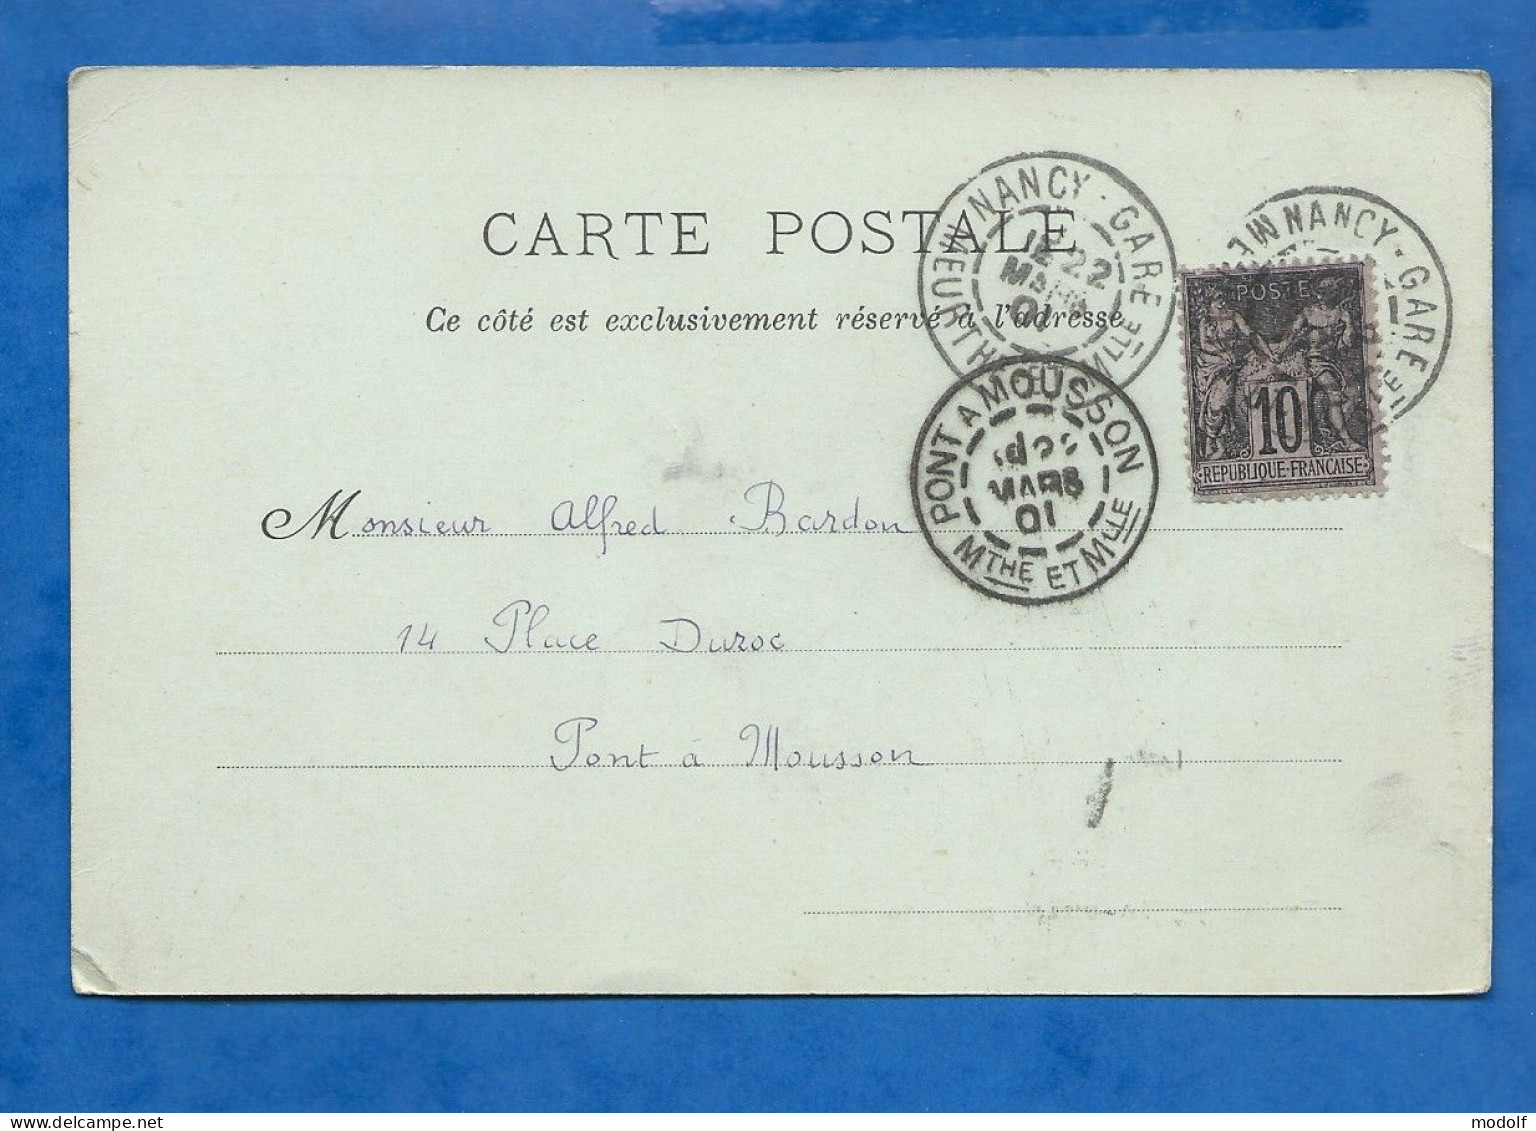 CARTE POSTALE
Ce côté est exclusivement réservé à l'adresse
NANCY - GARE
22
MARS
01
MEURTHE
MLLE
NANCY - GARE
POSTE
10
REPUBLIQUE FRANCAISE
PONT A MOUSSON
MARS
01
MTHE ET MLLE
Monsieur Alfred Bardon
14 Place Duroc
Pont à Mousson
delcampe.net
modolf